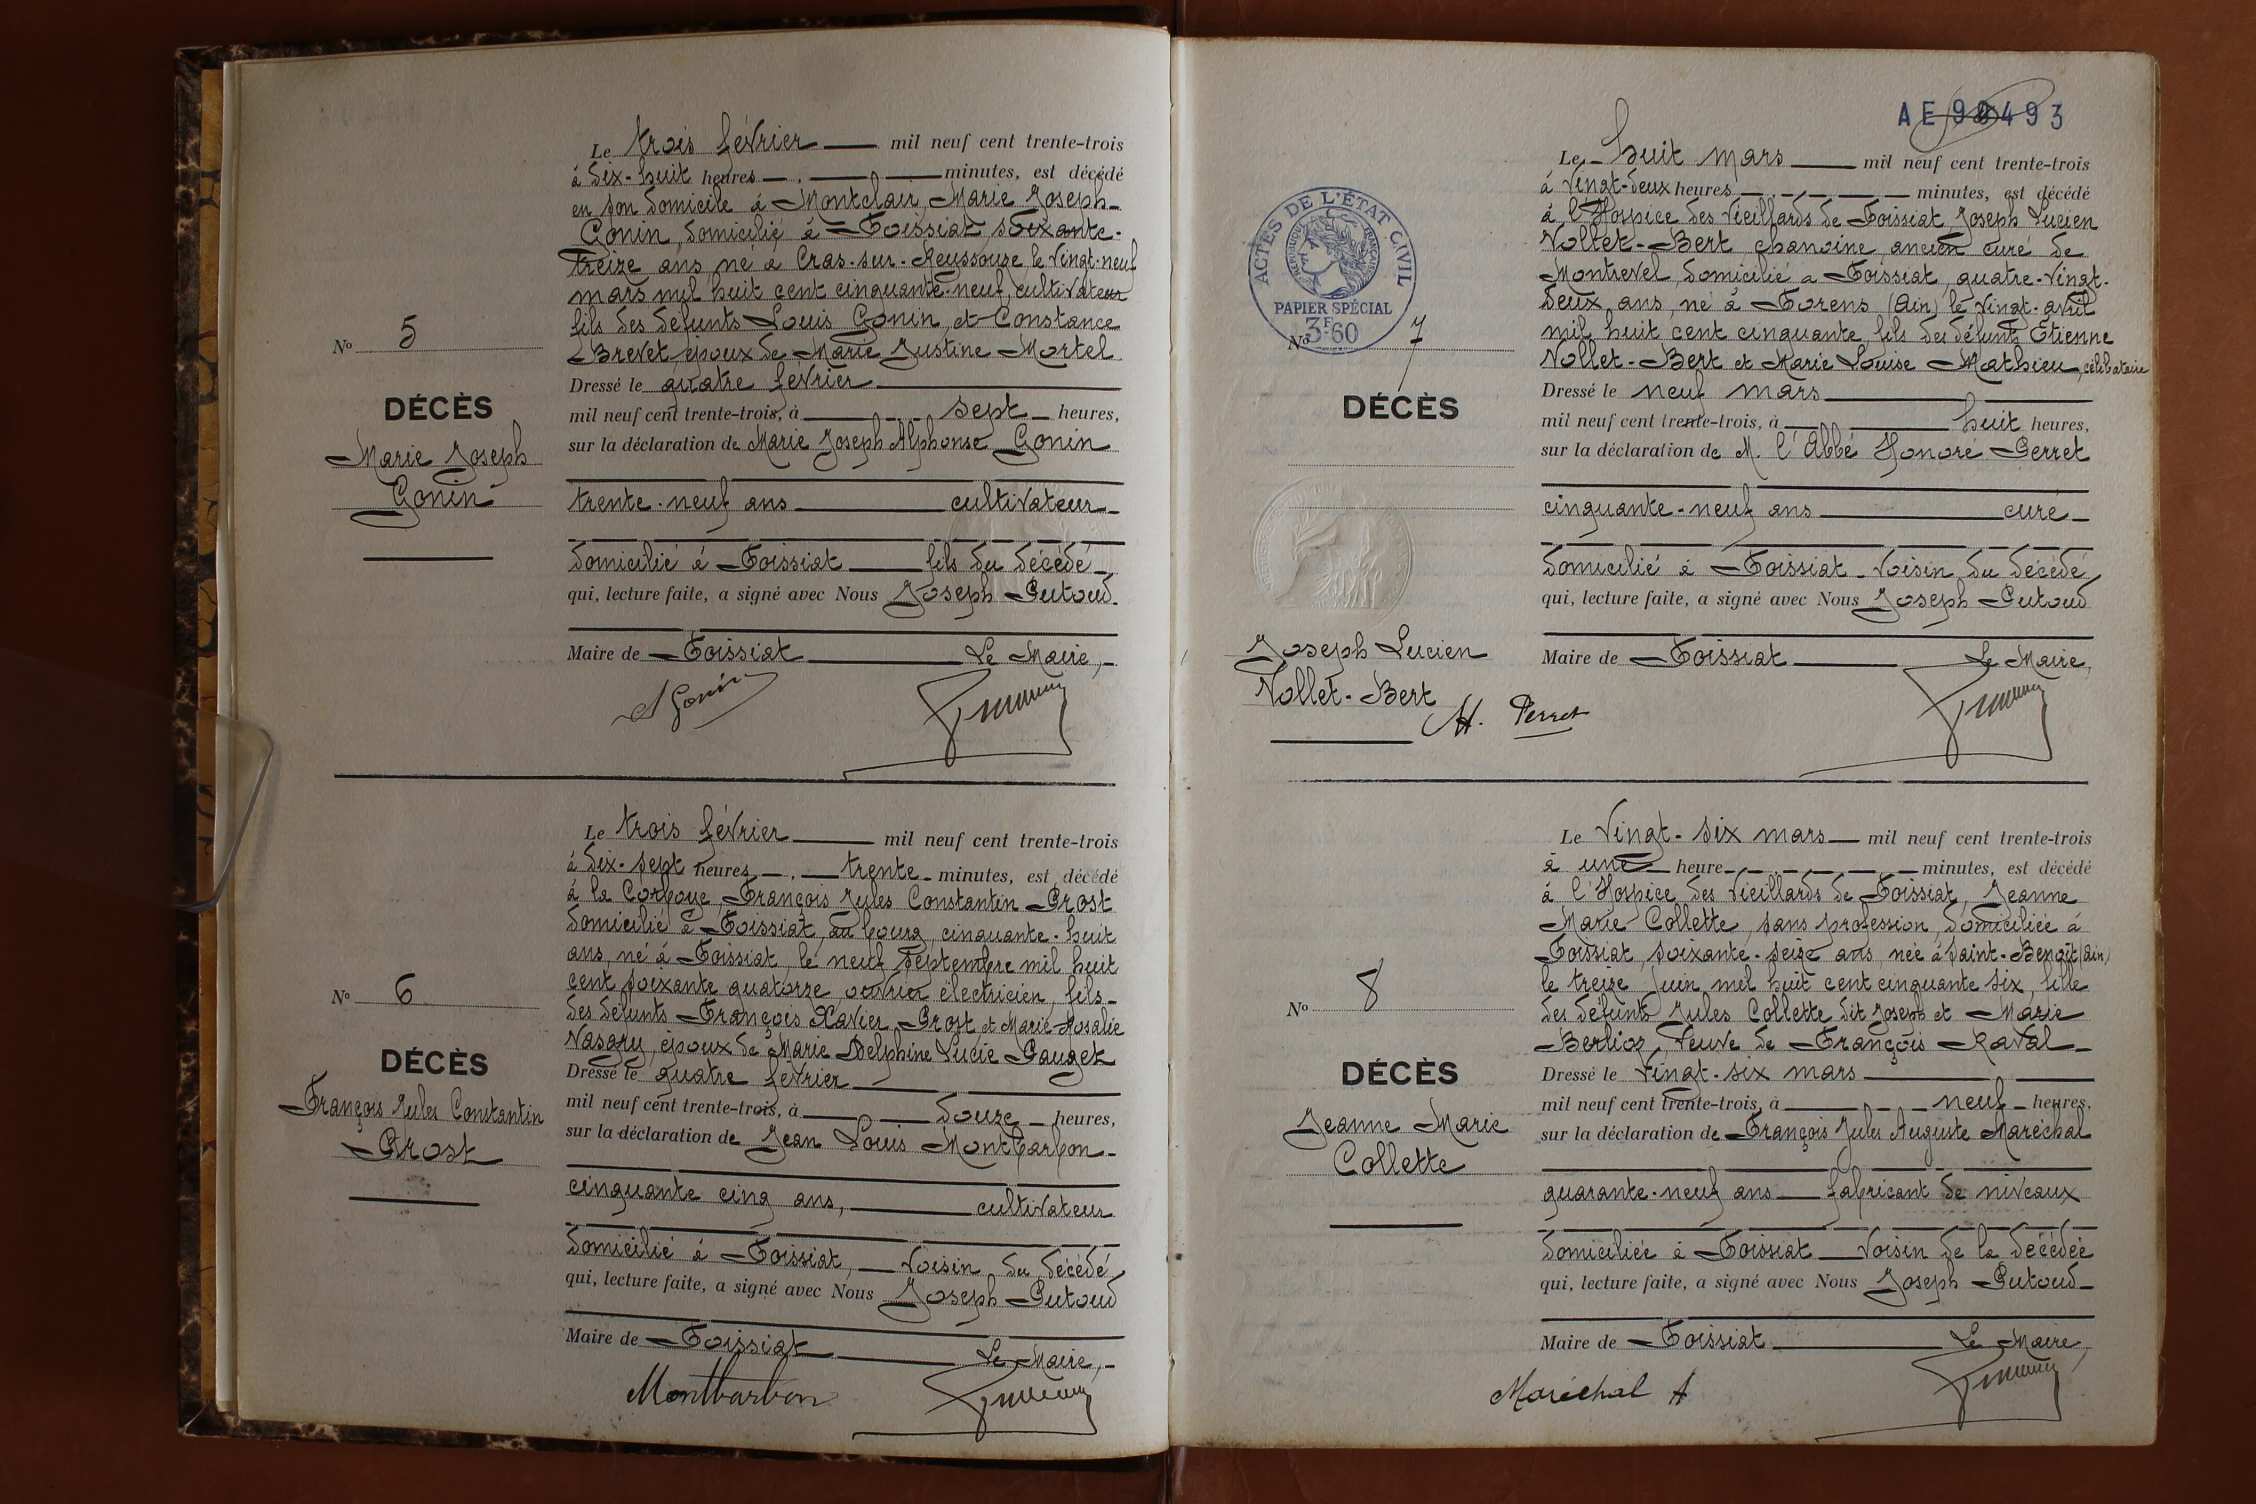 Le trois février mil neuf cent trente-trois
à dix-huit heures minutes, est décédé
en son domicile à Montclair, Marie Joseph
Gonin, domicilié à Foissiat, soixante-
treize ans, né à Cras-sur-Reyssouze, le vingt-neuf
mars mil huit cent cinquante-neuf, cultivateur
fils des défunts Louis Gonin, et Constance
Brevet, époux de Marie Justine Mortel
No 5
DÉCÈS
Marie Joseph
Gonin
Dressé le quatre février
mil neuf cent trente-trois, à sept heures,
sur la déclaration de Marie Joseph Alphonse Gonin
trente-neuf ans cultivateur
domicilié à Foissiat fils du décédé
qui, lecture faite, a signé avec Nous Joseph Putoud.
Maire de Foissiat Le Maire,
A Gonin
Le trois février mil neuf cent trente-trois
à dix-sept heures, trente minutes, est décédé
à la François Jules Constantin Prost
domicilié à Foissiat, au bourg, cinquante-huit
ans, né à Foissiat, le neuf septembre mil huit
cent soixante quatorze, ouvrier électricien, fils
des défunts François Xavier Prost et Marie Rosalie
époux de Marie Delphine Lucie Pauget
No 6
DÉCÈS
François Jules Constantin
Prost
Dressé le quatre février
mil neuf cent trente-trois, à douze heures,
sur la déclaration de Jean Louis Montbarbon
cinquante cinq ans, cultivateur
domicilié à Foissiat, voisin du décédé
qui, lecture faite, a signé avec Nous Joseph Putoud
Maire de Foissiat Le Maire,
Montbarbon
AE 493
Le huit mars mil neuf cent trente-trois
à vingt-deux heures minutes, est décédé
à l'Hospice des Vieillards de Foissiat, Joseph Lucien
Nollet-Bert chanoine, ancien curé de
Montrevel, domicilié à Foissiat, quatre-vingt-
deux ans, né à Corens (Ain) le vingt avril
mil huit cent cinquante, fils des défunts Etienne
Nollet-Bert et Marie Louise Mathieu, célibataire
ACTES DE L'ÉTAT CIVIL
RÉPUBLIQUE FRANÇAISE
PAPIER SPÉCIAL
3F60
No 7
DÉCÈS
Joseph Lucien
Nollet-Bert
Dressé le neuf mars
mil neuf cent trente-trois, à huit heures,
sur la déclaration de M. l'Abbé Honoré Perret
cinquante-neuf ans curé
domicilié à Foissiat voisin du décédé
qui, lecture faite, a signé avec Nous Joseph Putoud
Maire de Foissiat Le Maire,
H. Perret
Le vingt-six mars mil neuf cent trente-trois
à une heure minutes, est décédé
à l'Hospice des Vieillards de Foissiat, Jeanne
Marie Collette, sans profession, domiciliée à
Foissiat, soixante-seize ans, née à Saint-Benoît (Ain)
le treize juin mil huit cent cinquante six, fille
des défunts Jules Collette dit Joseph et Marie
Berlioz, veuve de François Raval
No 8
DÉCÈS
Jeanne Marie
Collette
Dressé le vingt-six mars
mil neuf cent trente-trois, à neuf heures,
sur la déclaration de François Jules Auguste Maréchal
quarante-neuf ans fabricant de niveaux
domiciliée à Foissiat voisin de la décédée
qui, lecture faite, a signé avec Nous Joseph Putoud
Maire de Foissiat Le Maire,
Maréchal A